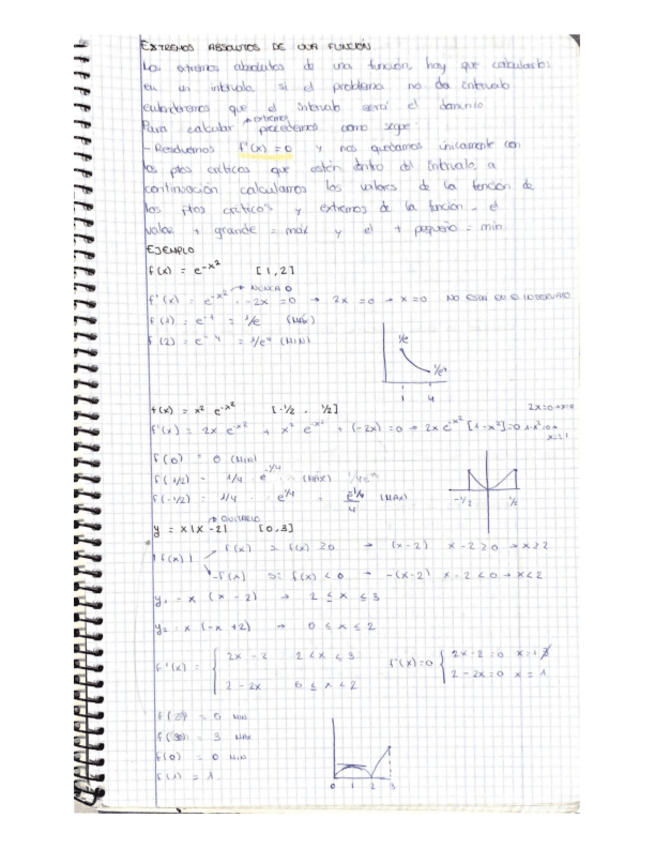 EXTREMOS ABSOLUTOS DE UNA FUNCIÓN
Los extremos absolutos de una función, hay que calcularlos
en un intervalo si el problema no da intervalo
entenderemos que el intervalo será el dominio
Para calcular extremos procedemos como sigue:
- Resolvemos f'(x) = 0 y nos quedamos únicamente con
los ptos críticos que estén dentro del intervalo, a
continuación calculamos los valores de la función de
los ptos críticos y extremos de la función. el
valor + grande = máx y el + pequeño = min.
EJEMPLO
f(x) = e^-x² [1,2]
→ NUNCA 0
f'(x) = e^-x² · -2x = 0 → 2x = 0 → x = 0 NO ESTÁ EN EL INTERVALO
f(1) = e^-1 = 1/e (MÁX)
f(2) = e^-4 = 1/e⁴ (MIN)
1/e
1/e⁴
1 4
f(x) = x² e^-x² [-1/2 , 1/2]
2x=0→x=0
f'(x) = 2x e^-x² + x² e^-x² + (-2x) = 0 → 2x e^-x² [1-x²]=0 1-x²=0→
x=±1
f(0) = 0 (MIN)
f(1/2) = 1/4 · e^-1/4 (MÁX)
f(-1/2) = 1/4 · e^1/4 = e^1/4/4 (MAX)
-1/2 1/2
→ QUITARLO
y = x|x-2| [0,3]
|f(x)| f(x) si f(x) ≥ 0 → (x-2) x-2 ≥ 0 → x ≥ 2
-f(x) si f(x) < 0 → -(x-2) x-2 < 0 → x < 2
y₁ = x (x-2) → 2 ≤ x ≤ 3
y₂ = x (-x+2) → 0 ≤ x ≤ 2
f'(x) = { 2x - 2 2 < x ≤ 3 f'(x)=0 { 2x-2=0 x=1
2 - 2x 0 ≤ x < 2 2-2x=0 x=1
f(2) = 0 MIN
f(3) = 3 MAX
f(0) = 0 MIN
f(1) = 1
0 1 2 3